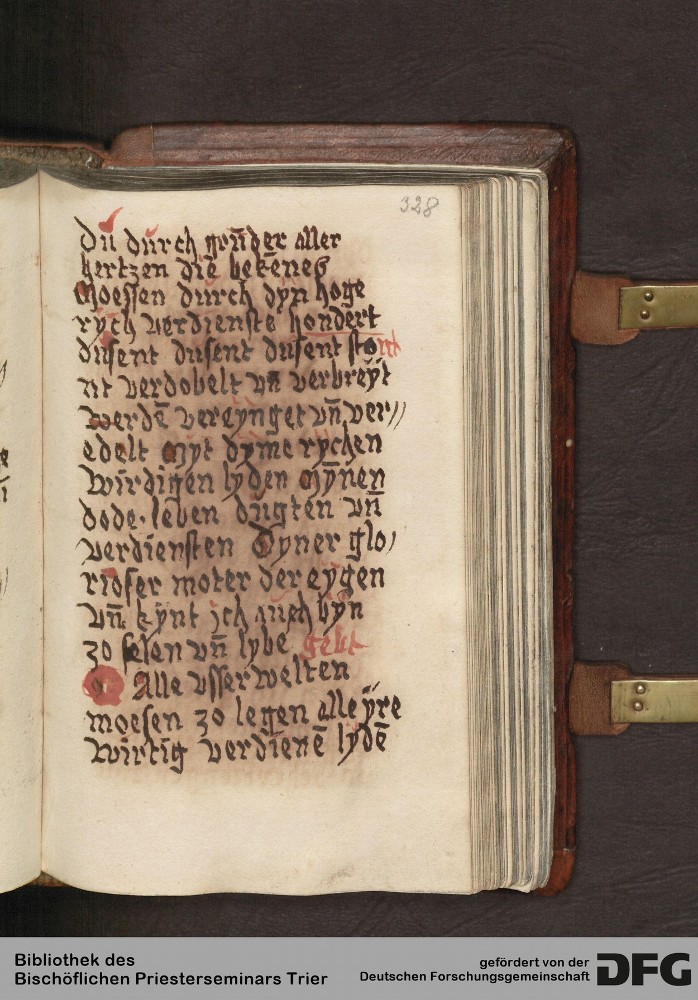 328
du durch grūder aller
hertzen die bekenes
moessen durch dyn hoge
rych verdienste hondert
dusent dusent dusent stont
nt verdobelt vn̄ verbreyt
werdē vereynget vn̄ ver//
edelt myt dyme rychen
wirdigen lyden mynen
dode. leben dugten vn̄
verdiensten Dyner glo/
rioser moter der eygen
vn̄ kynt ich auch byn
zo selen vn̄ lybe gebt
O Alle vsserwelten
moesen zo legen alle yre
wirtig verdienē lydē
Bibliothek des
Bischöflichen Priesterseminars Trier
gefördert von der
Deutschen Forschungsgemeinschaft DFG